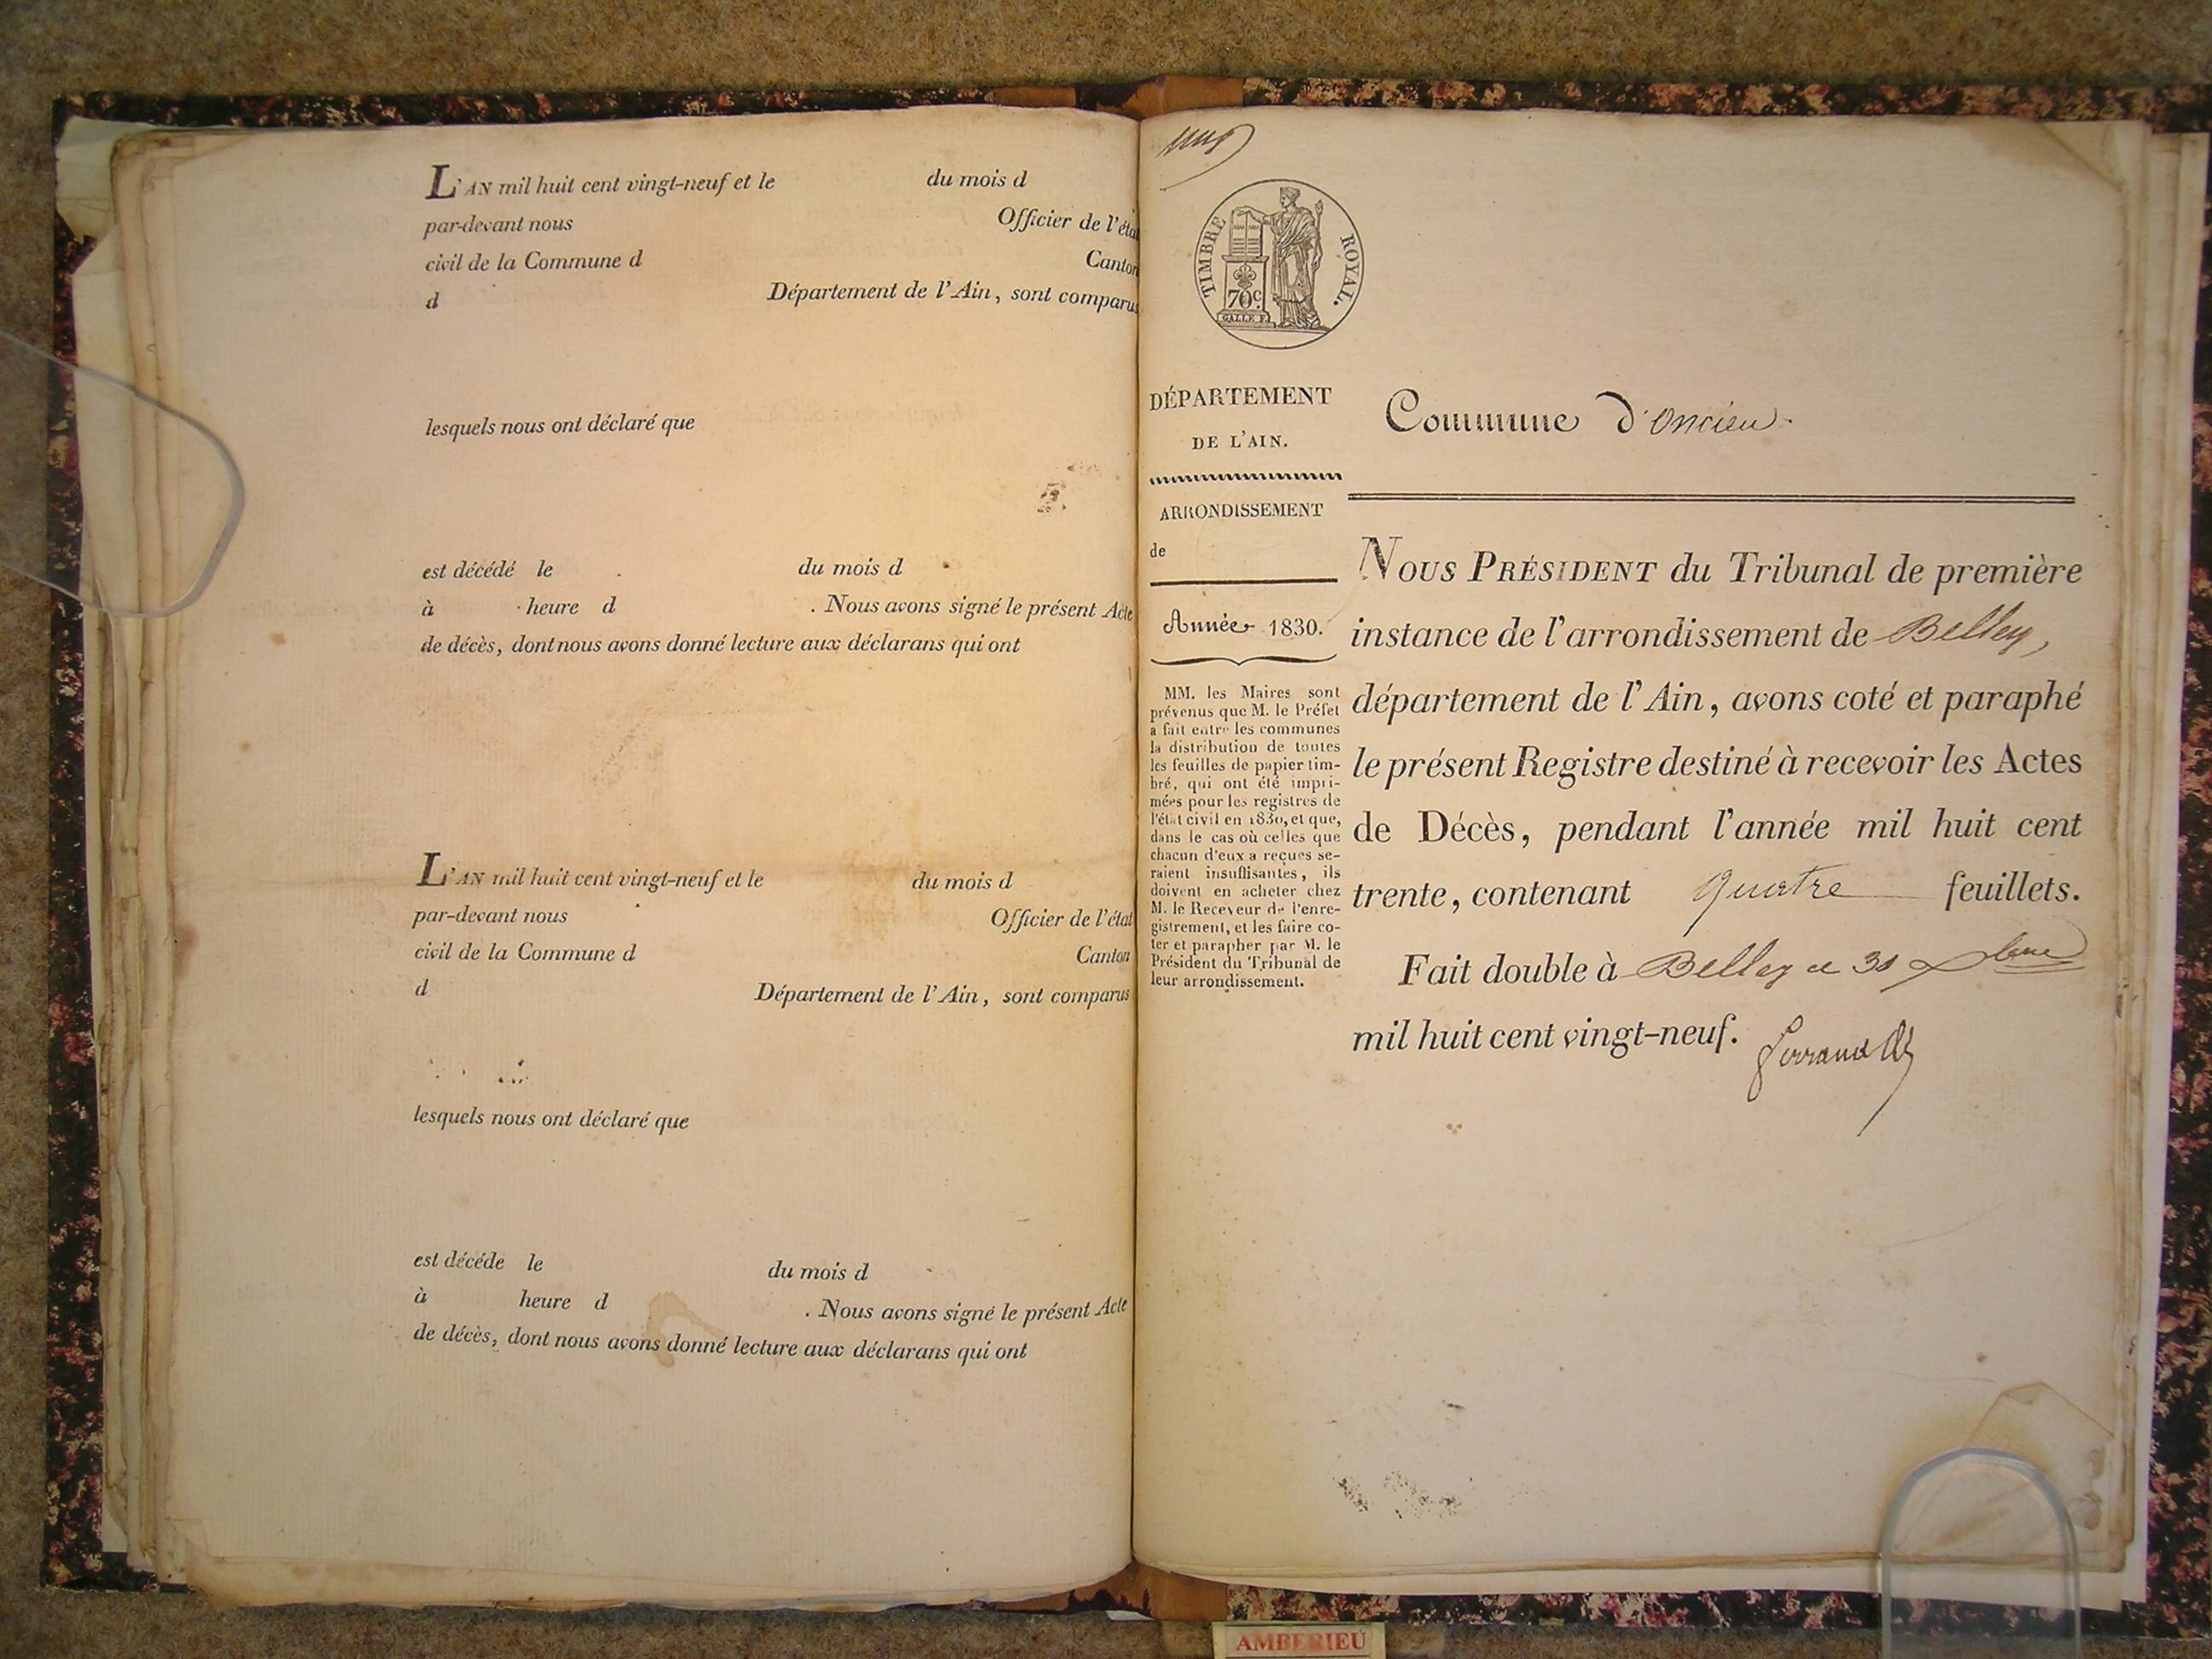 L'AN mil huit cent vingt-neuf et le du mois d
par-devant nous Officier de l'état
civil de la Commune d Canton
d Département de l'Ain, sont comparus
lesquels nous ont déclaré que
est décédé le du mois d
à heure d . Nous avons signé le présent Acte
de décès, dont nous avons donné lecture aux déclarans qui ont
L'AN mil huit cent vingt-neuf et le du mois d
par-devant nous Officier de l'état
civil de la Commune d Canton
d Département de l'Ain, sont comparus
lesquels nous ont déclaré que
est décéde le du mois d
à heure d . Nous avons signé le présent Acte
de décès, dont nous avons donné lecture aux déclarans qui ont
TIMBRE ROYAL.
70c.
DÉPARTEMENT
DE L'AIN.
ARRONDISSEMENT
de
Année 1830.
MM. les Maires sont
prévenus que M. le Préfet
a fait entre les communes
la distribution de toutes
les feuilles de papier tim-
bré, qui ont été impri-
mées pour les registres de
l'état civil en 1830, et que,
dans le cas où celles que
chacun d'eux a reçues se-
raient insuffisantes, ils
doivent en acheter chez
M. le Receveur de l'enre-
gistrement, et les faire co-
ter et parapher par M. le
Président du Tribunal de
leur arrondissement.
Commune d'oncieu.
NOUS PRÉSIDENT du Tribunal de première
instance de l'arrondissement de Belley,
département de l'Ain, avons coté et paraphé
le présent Registre destiné à recevoir les Actes
de Décès, pendant l'année mil huit cent
trente, contenant quatre feuillets.
Fait double à Belley ce 30 xbre
mil huit cent vingt-neuf.
AMBERIEU